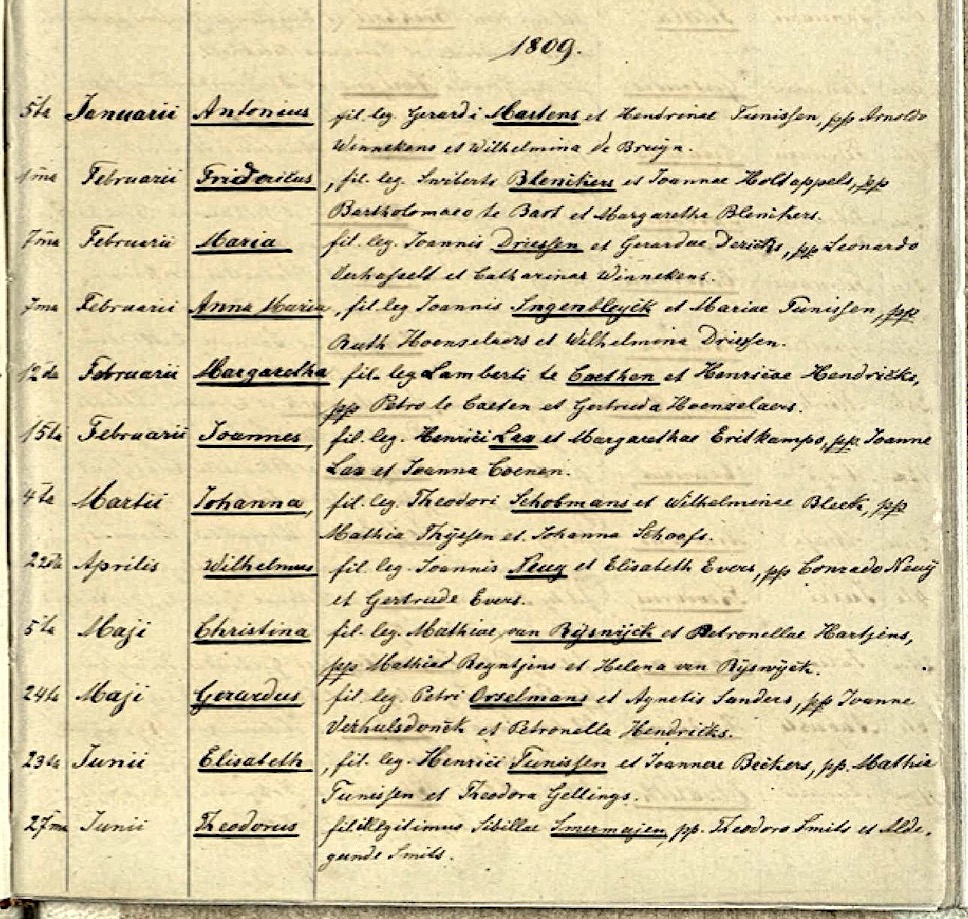 1809.
5ta Januarii Antonius fil. leg. Gerardi Martens et Hendrinae Tunissen, pp Arnoldo
Winnekens et Wilhelmina de Bruijn.
1ma Februarii Fridericus, fil. leg. Swiberti Blenikers et Joannae Holtappels, pp
Bartholomaeo te Bart et Margaretha Blenikers.
7ma Februarii Maria fil. leg. Joannis Driessen et Gerardae Derichs, pp Leonardo
Verhasselt et Catharinae Winnekens.
7ma Februarii Anna Maria, fil. leg Joannis Ingenbleyck et Mariae Tunissen, pp
Ruth Hoenselaers et Wilhelmina Driessen.
12da Februarii Margaretha fil. leg Lamberti te Caethen et Henricae Hendricks,
pp Petro te Caeten et Gertruda Hoenzelaers.
15ta Februarii Joannes, fil. leg. Henrici Lax et Margarethae Eritkamps, pp Joanne
Lax et Joanna Coenen.
4ta Martii Johanna, fil. leg. Theodori Schobmans et Wilhelminae Bleek, pp
Mathia Thijssen et Johanna Schoofs.
22da Aprilis Wilhelmus fil. leg. Joannis Neuij et Elisabeth Evers, pp Conrado Neuij
et Gertrude Evers.
5ta Maji Christina fil. leg. Mathiae van Rijswijck et Petronellae Hartjens,
pp Mathias Reyntjens et Helena van Rijswijck.
24ta Maji Gerardus fil. leg. Petri Orselmans et Agnetis Sanders, pp Joanne
Verhulsdonck et Petronella Hendricks.
23ta Junii Elisabeth, fil. leg. Henrici Tunissen et Joannae Beckers, pp. Mathia
Tunissen et Theodora Gellings.
27ma Junii Theodorus fil. illegitimus Sibillae Smermajen, pp. Theodoro Smits et Alde-
gunde Smits.